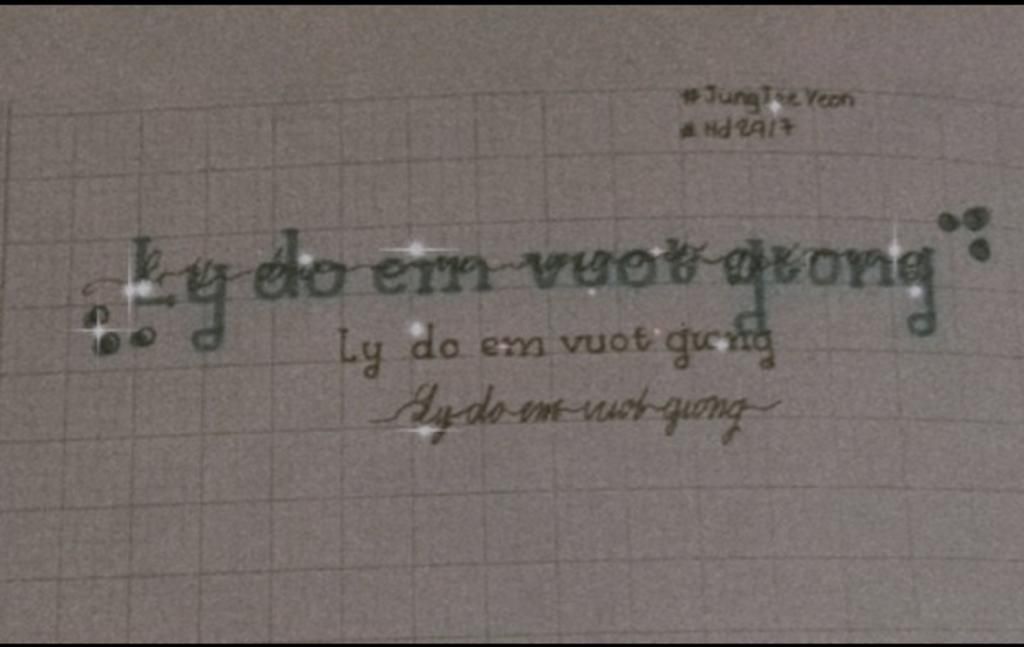 #JungTaeYeon
#Hd29/7
Ly do em vuot giong
Ly do em vuot giong
Ly do em vuot giong